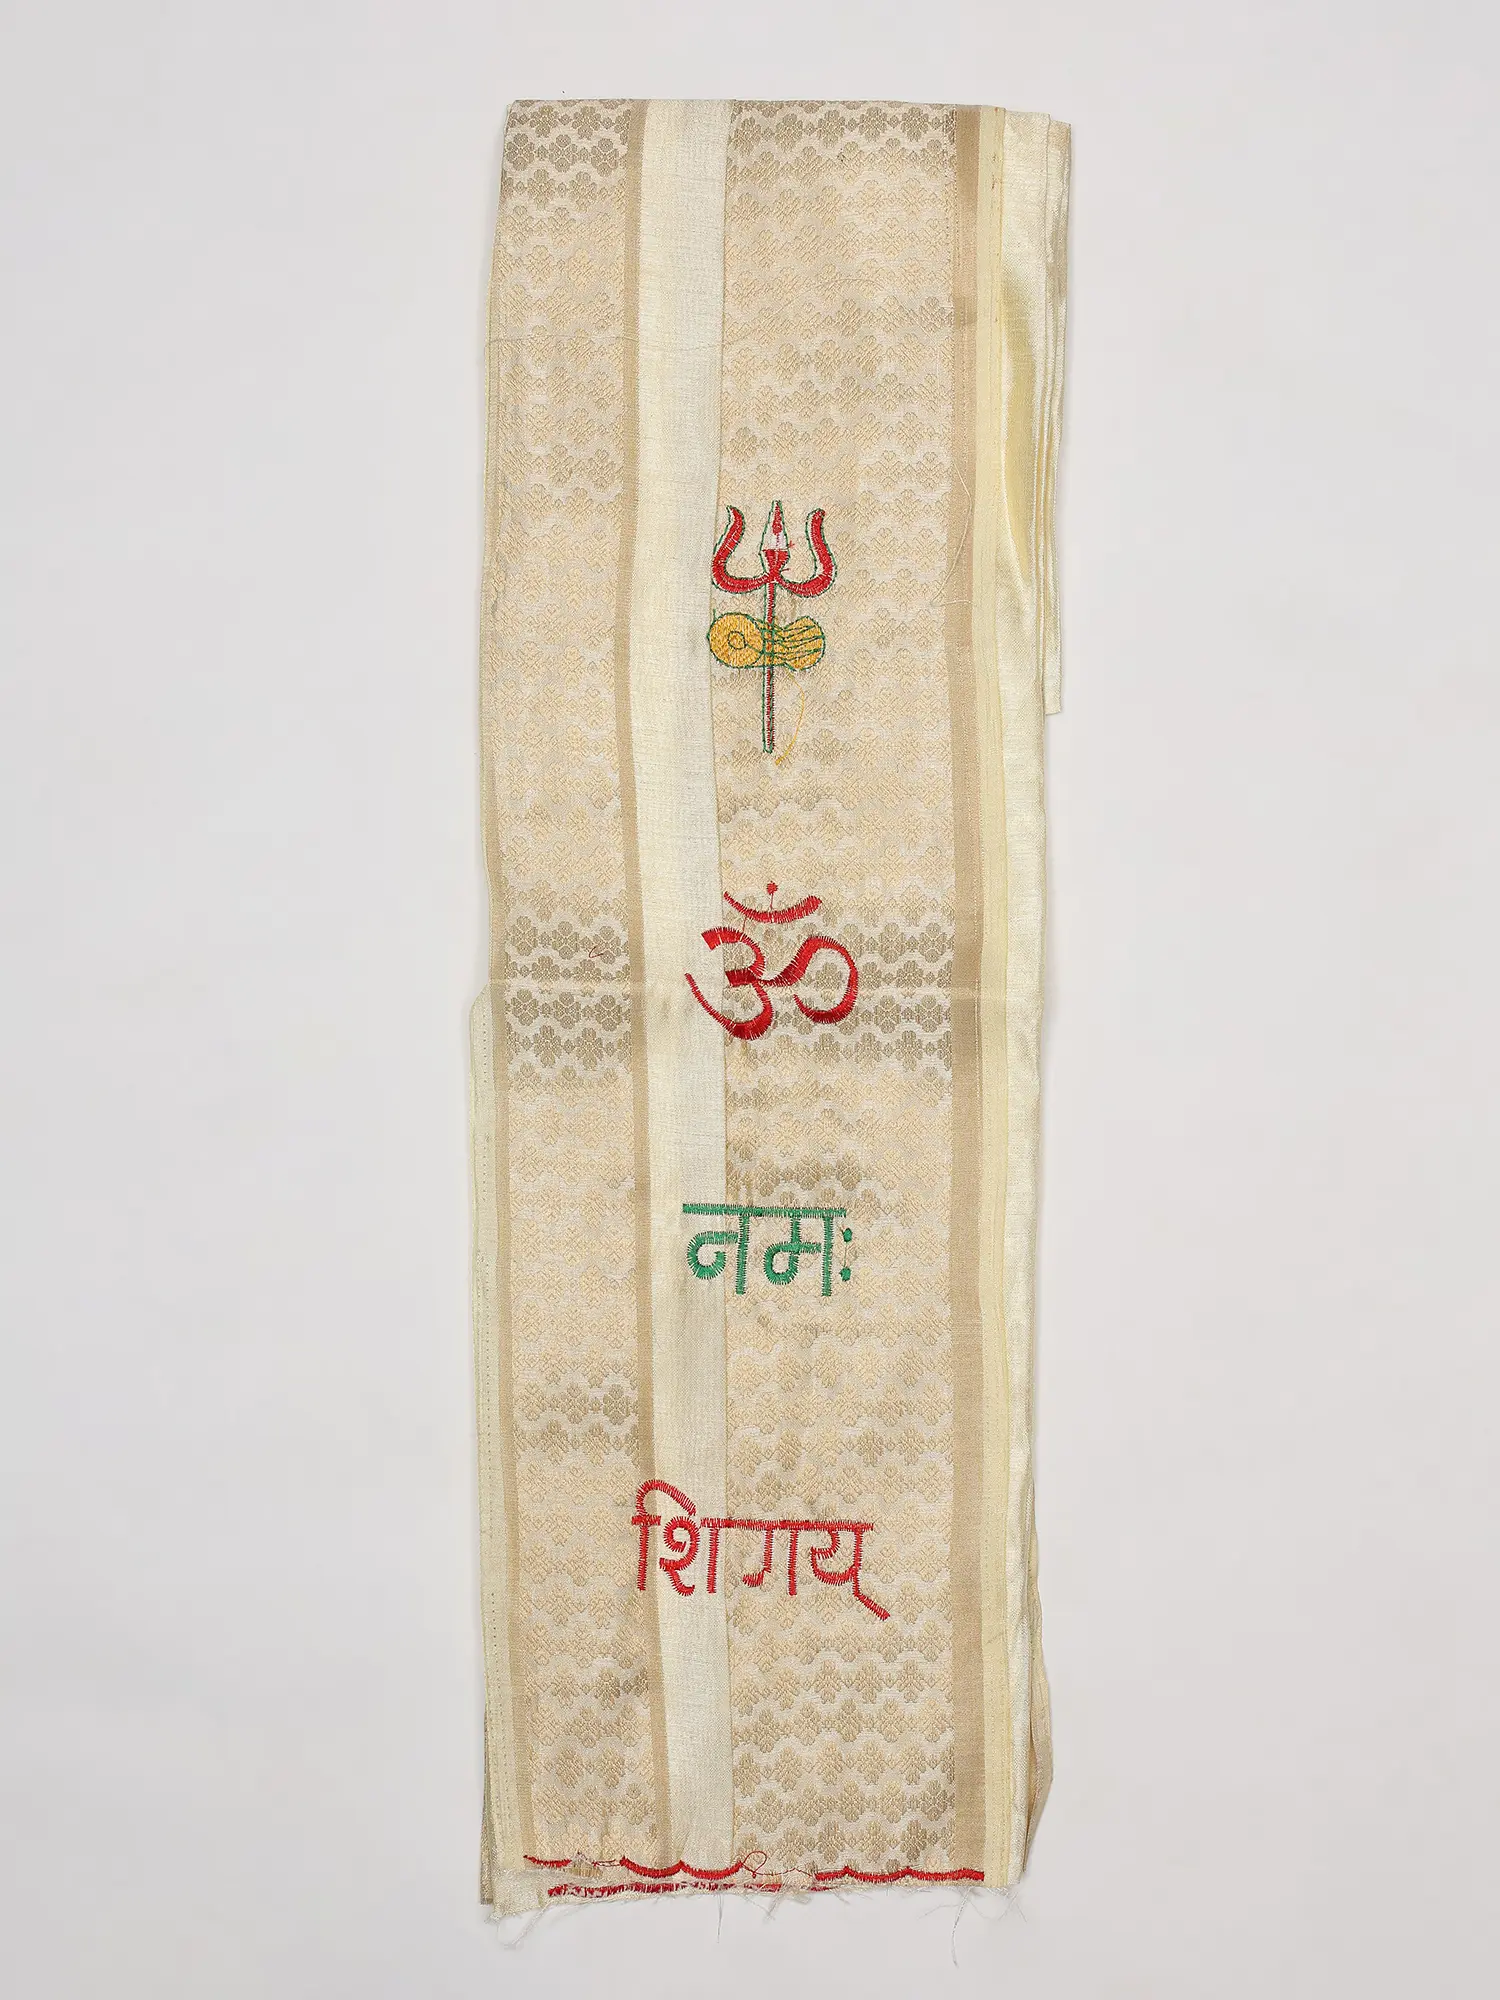 ॐ
नमः
शिगय्